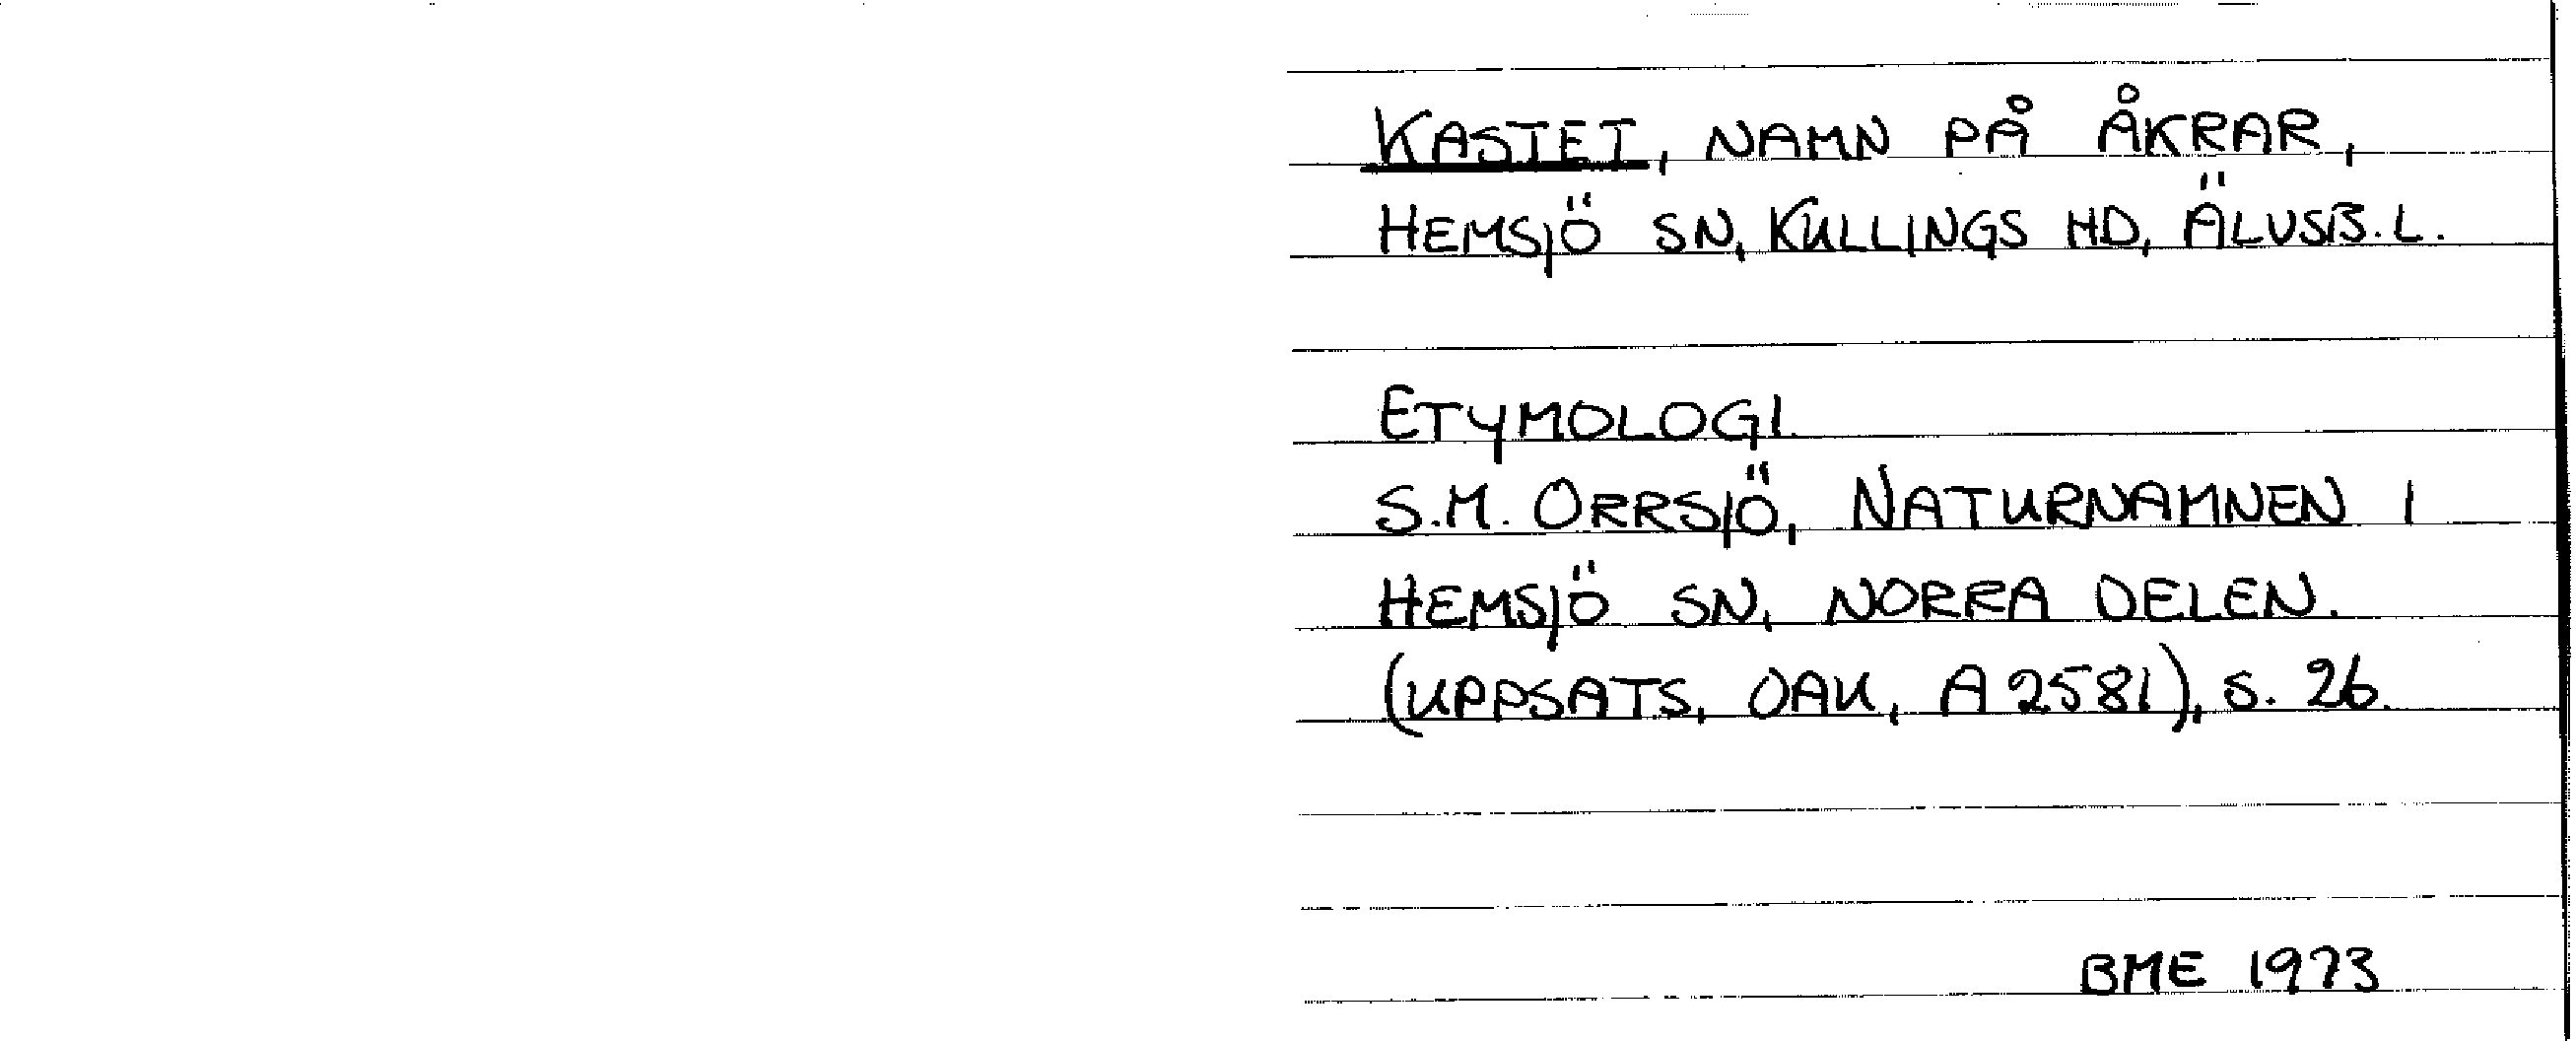 KASTET, NAMN PÅ ÅKRAR,
HEMSJÖ SN, KULLINGS HD, ÄLVSB. L.
ETYMOLOGI.
S.M. ORRSJÖ, NATURNAMNEN I
HEMSJÖ SN, NORRA DELEN.
(UPPSATS, OAU, A 2581), S. 26.
BME 1973